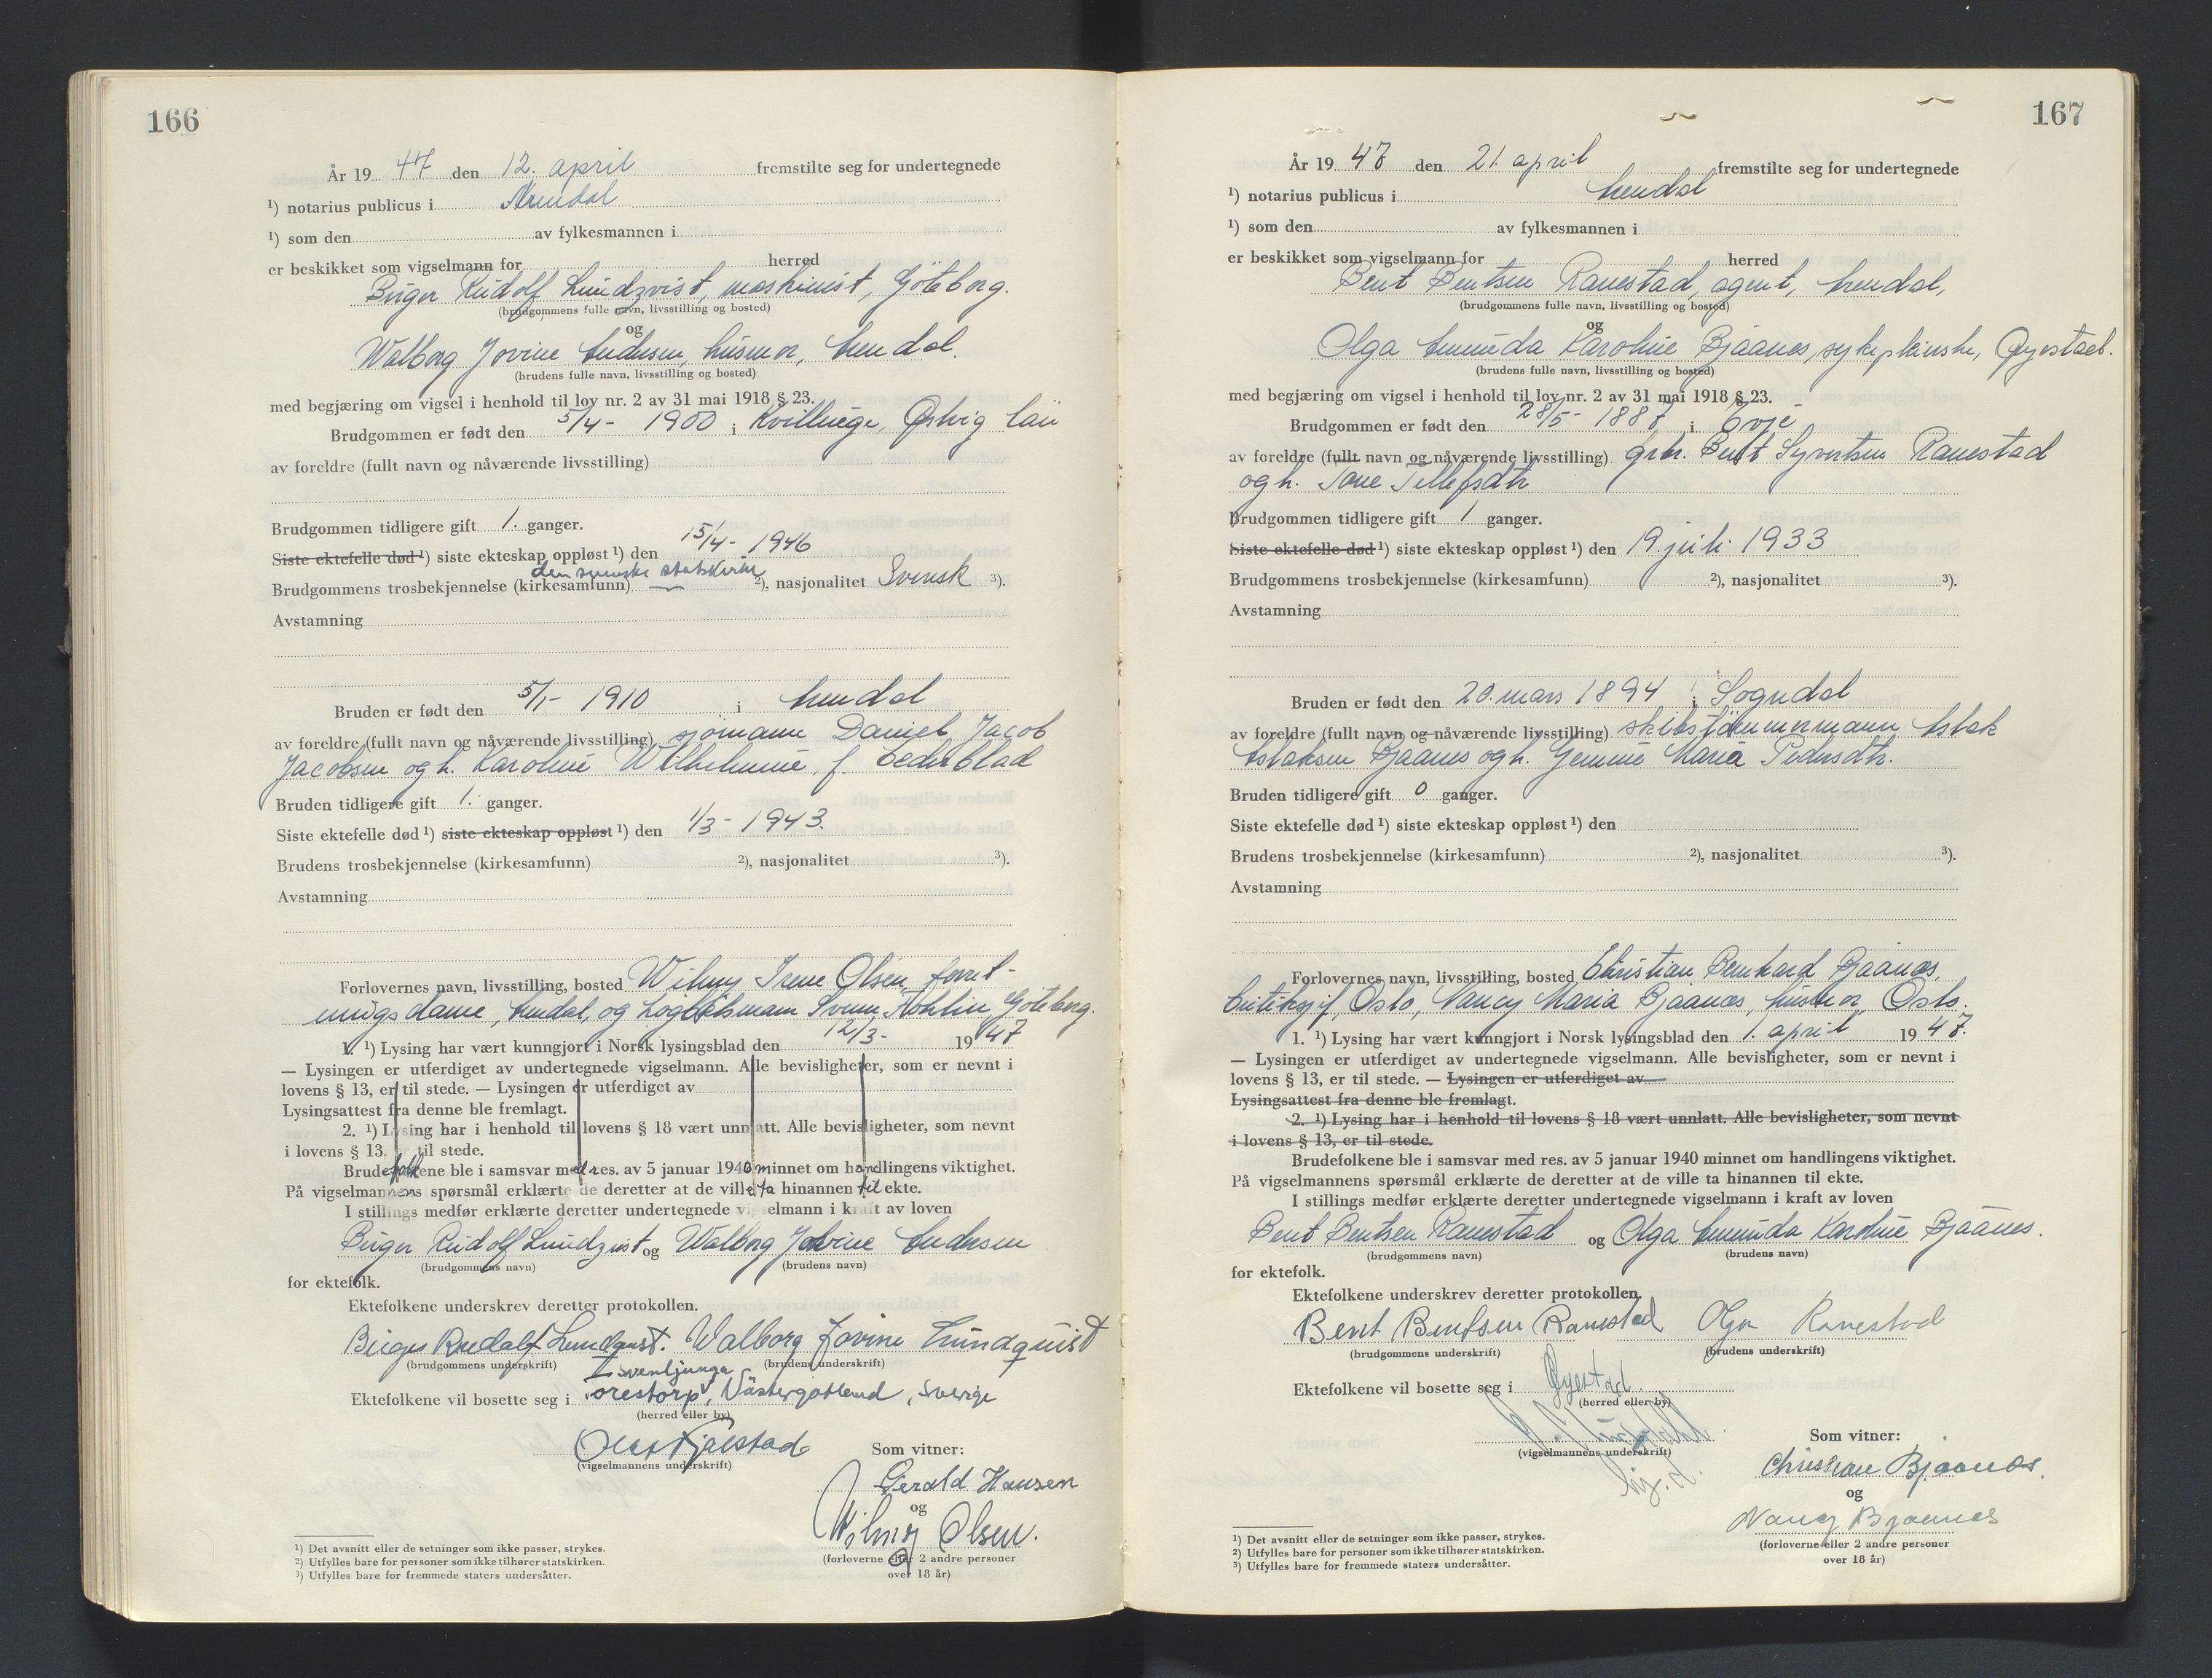 166
År 19 47 den 12. april fremstilte seg for undertegnede
¹) notarius publicus i Arendal
¹) som den av fylkesmannen i
er beskikket som vigselmann for herred
Birger Rudolf Lundqvist, maskinist, Göteborg.
(brudgommens fulle navn, livsstilling og bosted)
og
Walborg Jovine Andersen, husmor, Arendal.
(brudens fulle navn, livsstilling og bosted)
med begjæring om vigsel i henhold til lov nr. 2 av 31 mai 1918 § 23.
Brudgommen er født den 5/4- 1900 i Kvillinge, län
av foreldre (fullt navn og nåværende livsstilling)
Brudgommen tidligere gift 1. ganger.
Siste ektefelle død ¹) siste ekteskap oppløst ¹) den 15/4- 1946
den svenske statskirke
Brudgommens trosbekjennelse (kirkesamfunn) ²), nasjonalitet Svensk ³).
Avstamning
Bruden er født den 5/1- 1910 i Arendal
av foreldre (fullt navn og nåværende livsstilling) sjømann Daniel Jacob
Jacobsen og h. Karoline Wilhelmine, f. Cederblad
Bruden tidligere gift 1. ganger.
Siste ektefelle død ¹) siste ekteskap oppløst ¹) den 1/3- 1943.
Brudens trosbekjennelse (kirkesamfunn) ²), nasjonalitet ³).
Avstamning
Forlovernes navn, livsstilling, bosted Wilmy Irene Olsen, forret-
ningsdame, Arendal, og Svenn Göteborg.
1. ¹) Lysing har vært kunngjort i Norsk lysingsblad den 12/3- 1947
— Lysingen er utferdiget av undertegnede vigselmann. Alle bevisligheter, som er nevnt i
lovens § 13, er til stede. — Lysingen er utferdiget av
Lysingsattest fra denne ble fremlagt.
2. ¹) Lysing har i henhold til lovens § 18 vært unnlatt. Alle bevisligheter, som nevnt
i lovens § 13, til stede.
Brudefolkene ble i samsvar med res. av 5 januar 1940 minnet om handlingens viktighet.
På vigselmannens spørsmål erklærte de deretter at de ville ta hinannen til ekte.
I stillings medfør erklærte deretter undertegnede vigselmann i kraft av loven
Birger Rudolf Lundqvist og Walborg Jovine Andersen
(brudgommens navn) (brudens navn)
for ektefolk.
Ektefolkene underskrev deretter protokollen.
Birger Rudolf Lundqvist. Walborg Jovine Lundquist
(brudgommens underskrift) (brudens underskrift)
Svenljunga
Ektefolkene vil bosette seg i Torestorp, Västergötland, Sverige
(herred eller by)
(vigselmannens underskrift)
Som vitner:
Gerald Hansen
og
Wilmy Olsen.
(forloverne eller 2 andre personer
over 18 år)
¹) Det avsnitt eller de setninger som ikke passer, strykes.
²) Utfylles bare for personer som ikke tilhører statskirken.
³) Utfylles bare for fremmede staters undersåtter.
167
År 19 47 den 21. april fremstilte seg for undertegnede
¹) notarius publicus i Arendal
¹) som den av fylkesmannen i
er beskikket som vigselmann for herred
Bent Bentsen Ranestad, agent, Arendal,
(brudgommens fulle navn, livsstilling og bosted)
og
Olga Amunda Karoline Bjaanes, sykepleierske, Øyestad.
(brudens fulle navn, livsstilling og bosted)
med begjæring om vigsel i henhold til lov nr. 2 av 31 mai 1918 § 23.
Brudgommen er født den 28/5- 1887 i Evje
av foreldre (fullt navn og nåværende livsstilling) grbr. Bent Syvertsen Ranestad
og h. Tone Tellefsdtr
Brudgommen tidligere gift 1 ganger.
Siste ektefelle død ¹) siste ekteskap oppløst ¹) den 19. juli 1933
Brudgommens trosbekjennelse (kirkesamfunn) ²), nasjonalitet ³).
Avstamning
Bruden er født den 20. mars 1894 i Sogndal
av foreldre (fullt navn og nåværende livsstilling) skibstømmermann Aslak
Aslaksen Bjaanes og h. Gemine Maria Pedersdtr.
Bruden tidligere gift 0 ganger.
Siste ektefelle død ¹) siste ekteskap oppløst ¹) den
Brudens trosbekjennelse (kirkesamfunn) ²), nasjonalitet ³).
Avstamning
Forlovernes navn, livsstilling, bosted Christian Bernhard Bjaanes,
Oslo, Nancy Maria Bjaanes, husmor, Oslo.
1. ¹) Lysing har vært kunngjort i Norsk lysingsblad den 1. april 1947.
— Lysingen er utferdiget av undertegnede vigselmann. Alle bevisligheter, som er nevnt i
lovens § 13, er til stede. — Lysingen er utferdiget av
Lysingsattest fra denne ble fremlagt.
2. ¹) Lysing har i henhold til lovens § 18 vært unnlatt. Alle bevisligheter, som nevnt
i lovens § 13, er til stede.
Brudefolkene ble i samsvar med res. av 5 januar 1940 minnet om handlingens viktighet.
På vigselmannens spørsmål erklærte de deretter at de ville ta hinannen til ekte.
I stillings medfør erklærte deretter undertegnede vigselmann i kraft av loven
Bent Bentsen Ranestad og Olga Amunda Karoline Bjaanes.
(brudgommens navn) (brudens navn)
for ektefolk.
Ektefolkene underskrev deretter protokollen.
Bent Bentsen Ranestad Olga Ranestad
(brudgommens underskrift) (brudens underskrift)
Ektefolkene vil bosette seg i Øyestad
(herred eller by)
(vigselmannens underskrift)
Som vitner:
Christian Bjaanes.
og
Nancy Bjaanes
(forloverne eller 2 andre personer
over 18 år)
¹) Det avsnitt eller de setninger som ikke passer, strykes.
²) Utfylles bare for personer som ikke tilhører statskirken.
³) Utfylles bare for fremmede staters undersåtter.